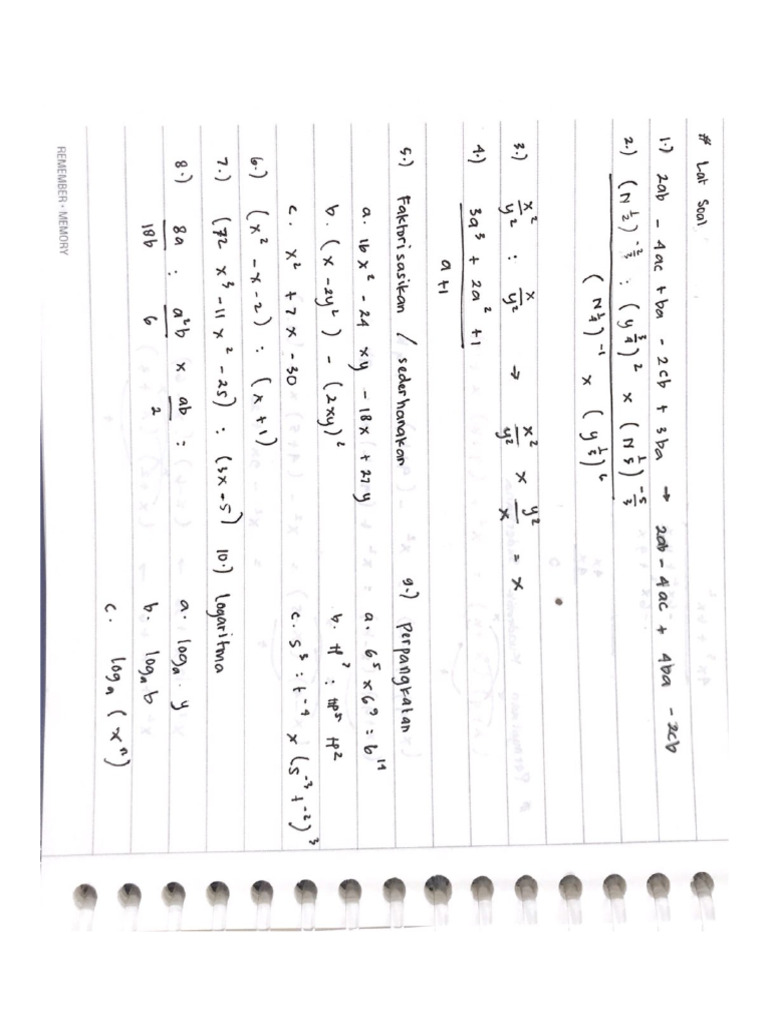 # Lat Soal
1.) 2ab - 4ac + ba - 2cb + 3ba → 2ab - 4ac + 4ba - 2cb
2.) (N^{1/2})^{-2/3} : (y^{3/4})^2 × (N^{1/5})^{-5/3}
(N^{1/4})^{-1} × (y^{1/3})^6
3.) x²/y² : x/y² → x²/y² × y²/x = x
4.) 3a³ + 2a² + 1
a+1
5.) Faktorisasikan / sederhanakan
a. 16x² - 24 xy - 18x + 27y
b. (x - 2y²) - (2xy)²
c. x² + 7x - 30
6.) (x² - x - 2) : (x + 1)
7.) (72 x³ - 11x² - 25) : (3x - 5)
8.) 8a/18b : a²b/6 × ab/2 =
9.) perpangkatan
a. 6⁵ × 6⁹ = 6¹⁴
b. p⁷ : p⁵ p²
c. s³ : t⁻⁴ × (s⁻³ t⁻²)³
10.) Logaritma
a. logₐ y
b. logₐ b
c. logₐ (xⁿ)
REMEMBER • MEMORY